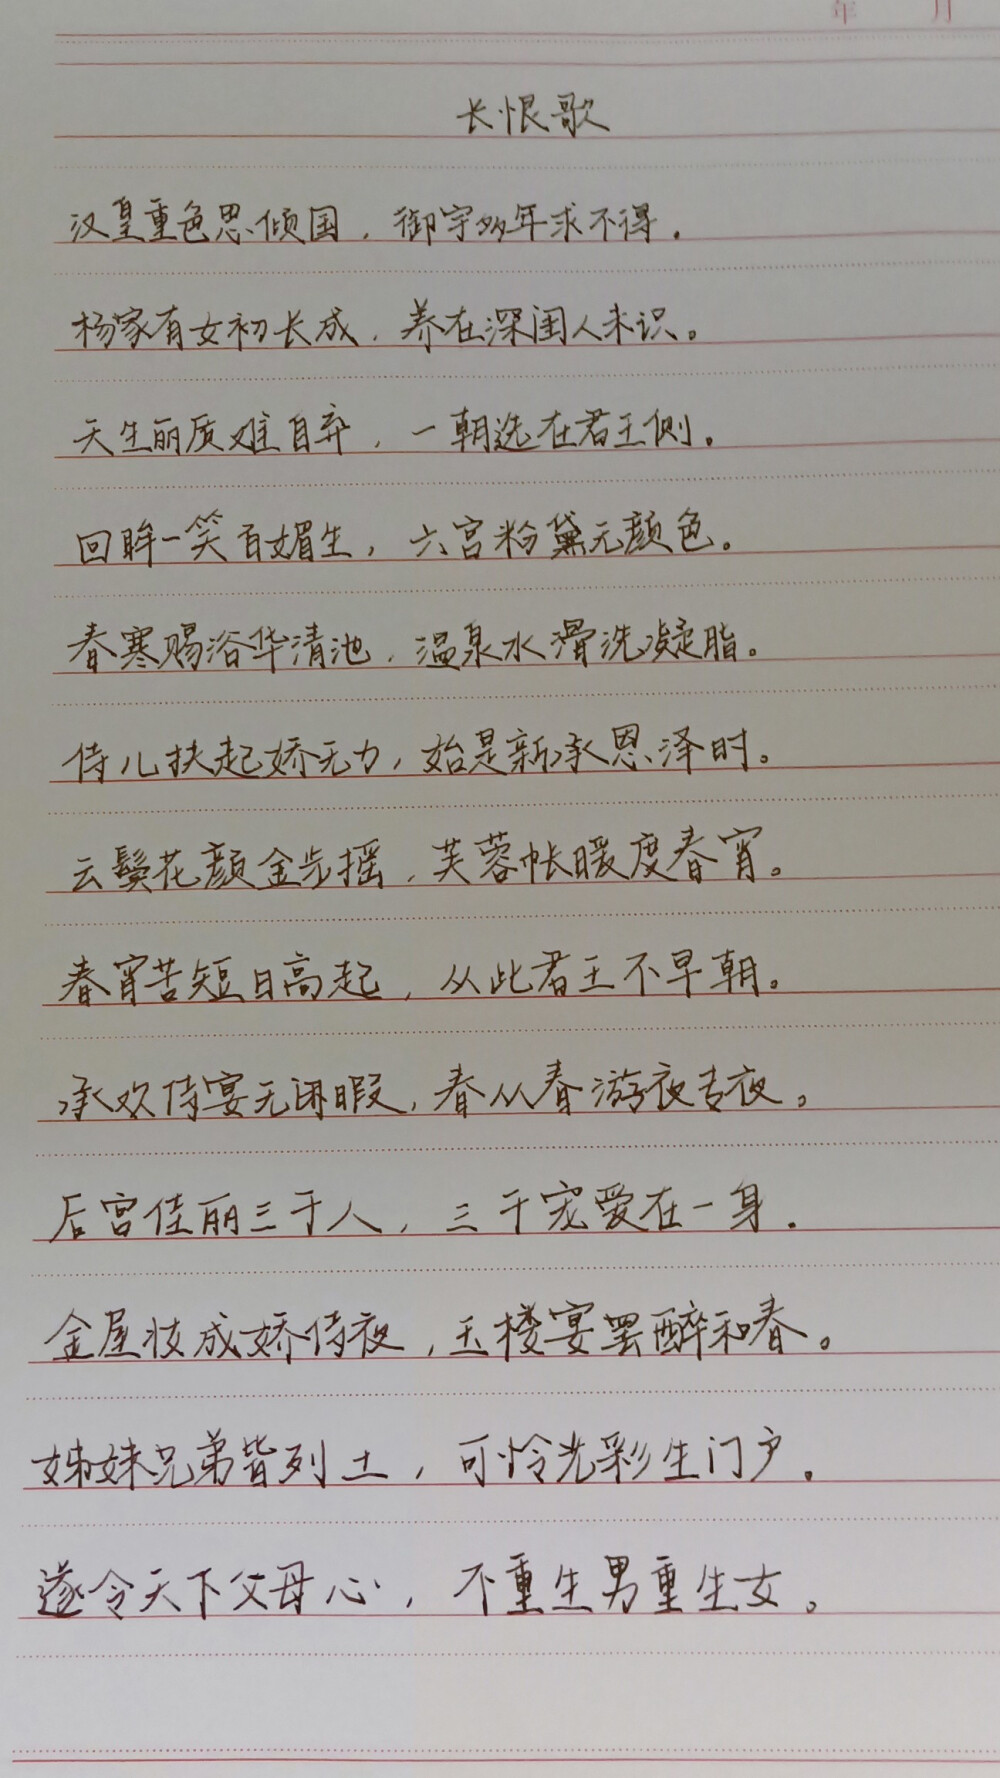 年 月
长恨歌
汉皇重色思倾国，御宇多年求不得．
杨家有女初长成，养在深闺人未识。
天生丽质难自弃，一朝选在君王侧。
回眸一笑百媚生，六宫粉黛无颜色。
春寒赐浴华清池，温泉水滑洗凝脂。
侍儿扶起娇无力，始是新承恩泽时。
云鬓花颜金步摇，芙蓉帐暖度春宵。
春宵苦短日高起，从此君王不早朝。
承欢侍宴无闲暇，春从春游夜专夜。
后宫佳丽三千人，三千宠爱在一身．
金屋妆成娇侍夜，玉楼宴罢醉和春。
姊妹兄弟皆列土，可怜光彩生门户．
遂令天下父母心，不重生男重生女。